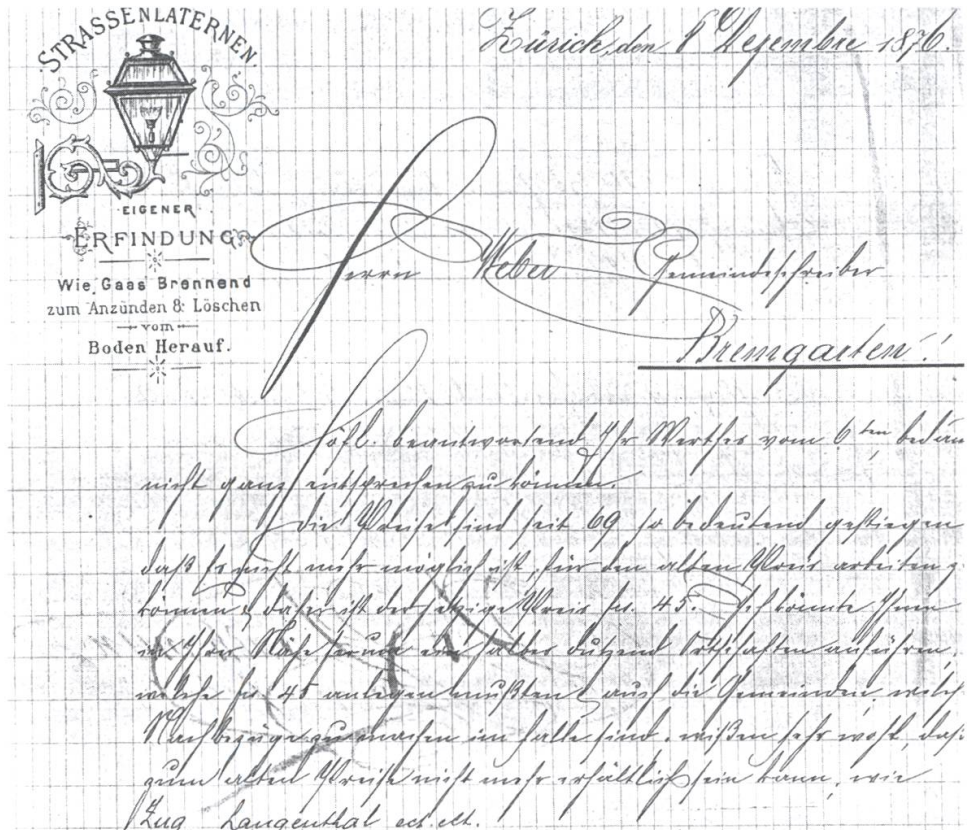 STRASSENLATERNEN.
EIGENER
ERFINDUNG
Wie Gaas Brennend
zum Anzünden & Löschen
vom
Boden Herauf.
Zürich, den 8 Dezembre 1876.
Herrn Weber Gemeindeschreiber
Bremgarten!
Höfl. beantwortend Ihr Werthes vom 6ten
nicht ganz entsprechen zu können.
Die Preise sind seit 69 so bedeutend gestiegen
daß es nicht mehr möglich ist, für den alten Preis arbeiten z
können & daher ist der jetzige Preis fr. 45. Ich könnte Ihnen
in Ihrer Nähe herum ein halber dutzend Ortschaften anführen,
welche fr. 45 anlegen mußten & auch die Gemeinden, welch
Nachbezüge zu machen im Falle sind, wißen sehr wohl, daß
zum alten Preise nicht mehr erhältlich sein kann, wie
Zug Langenthal ect. ect.